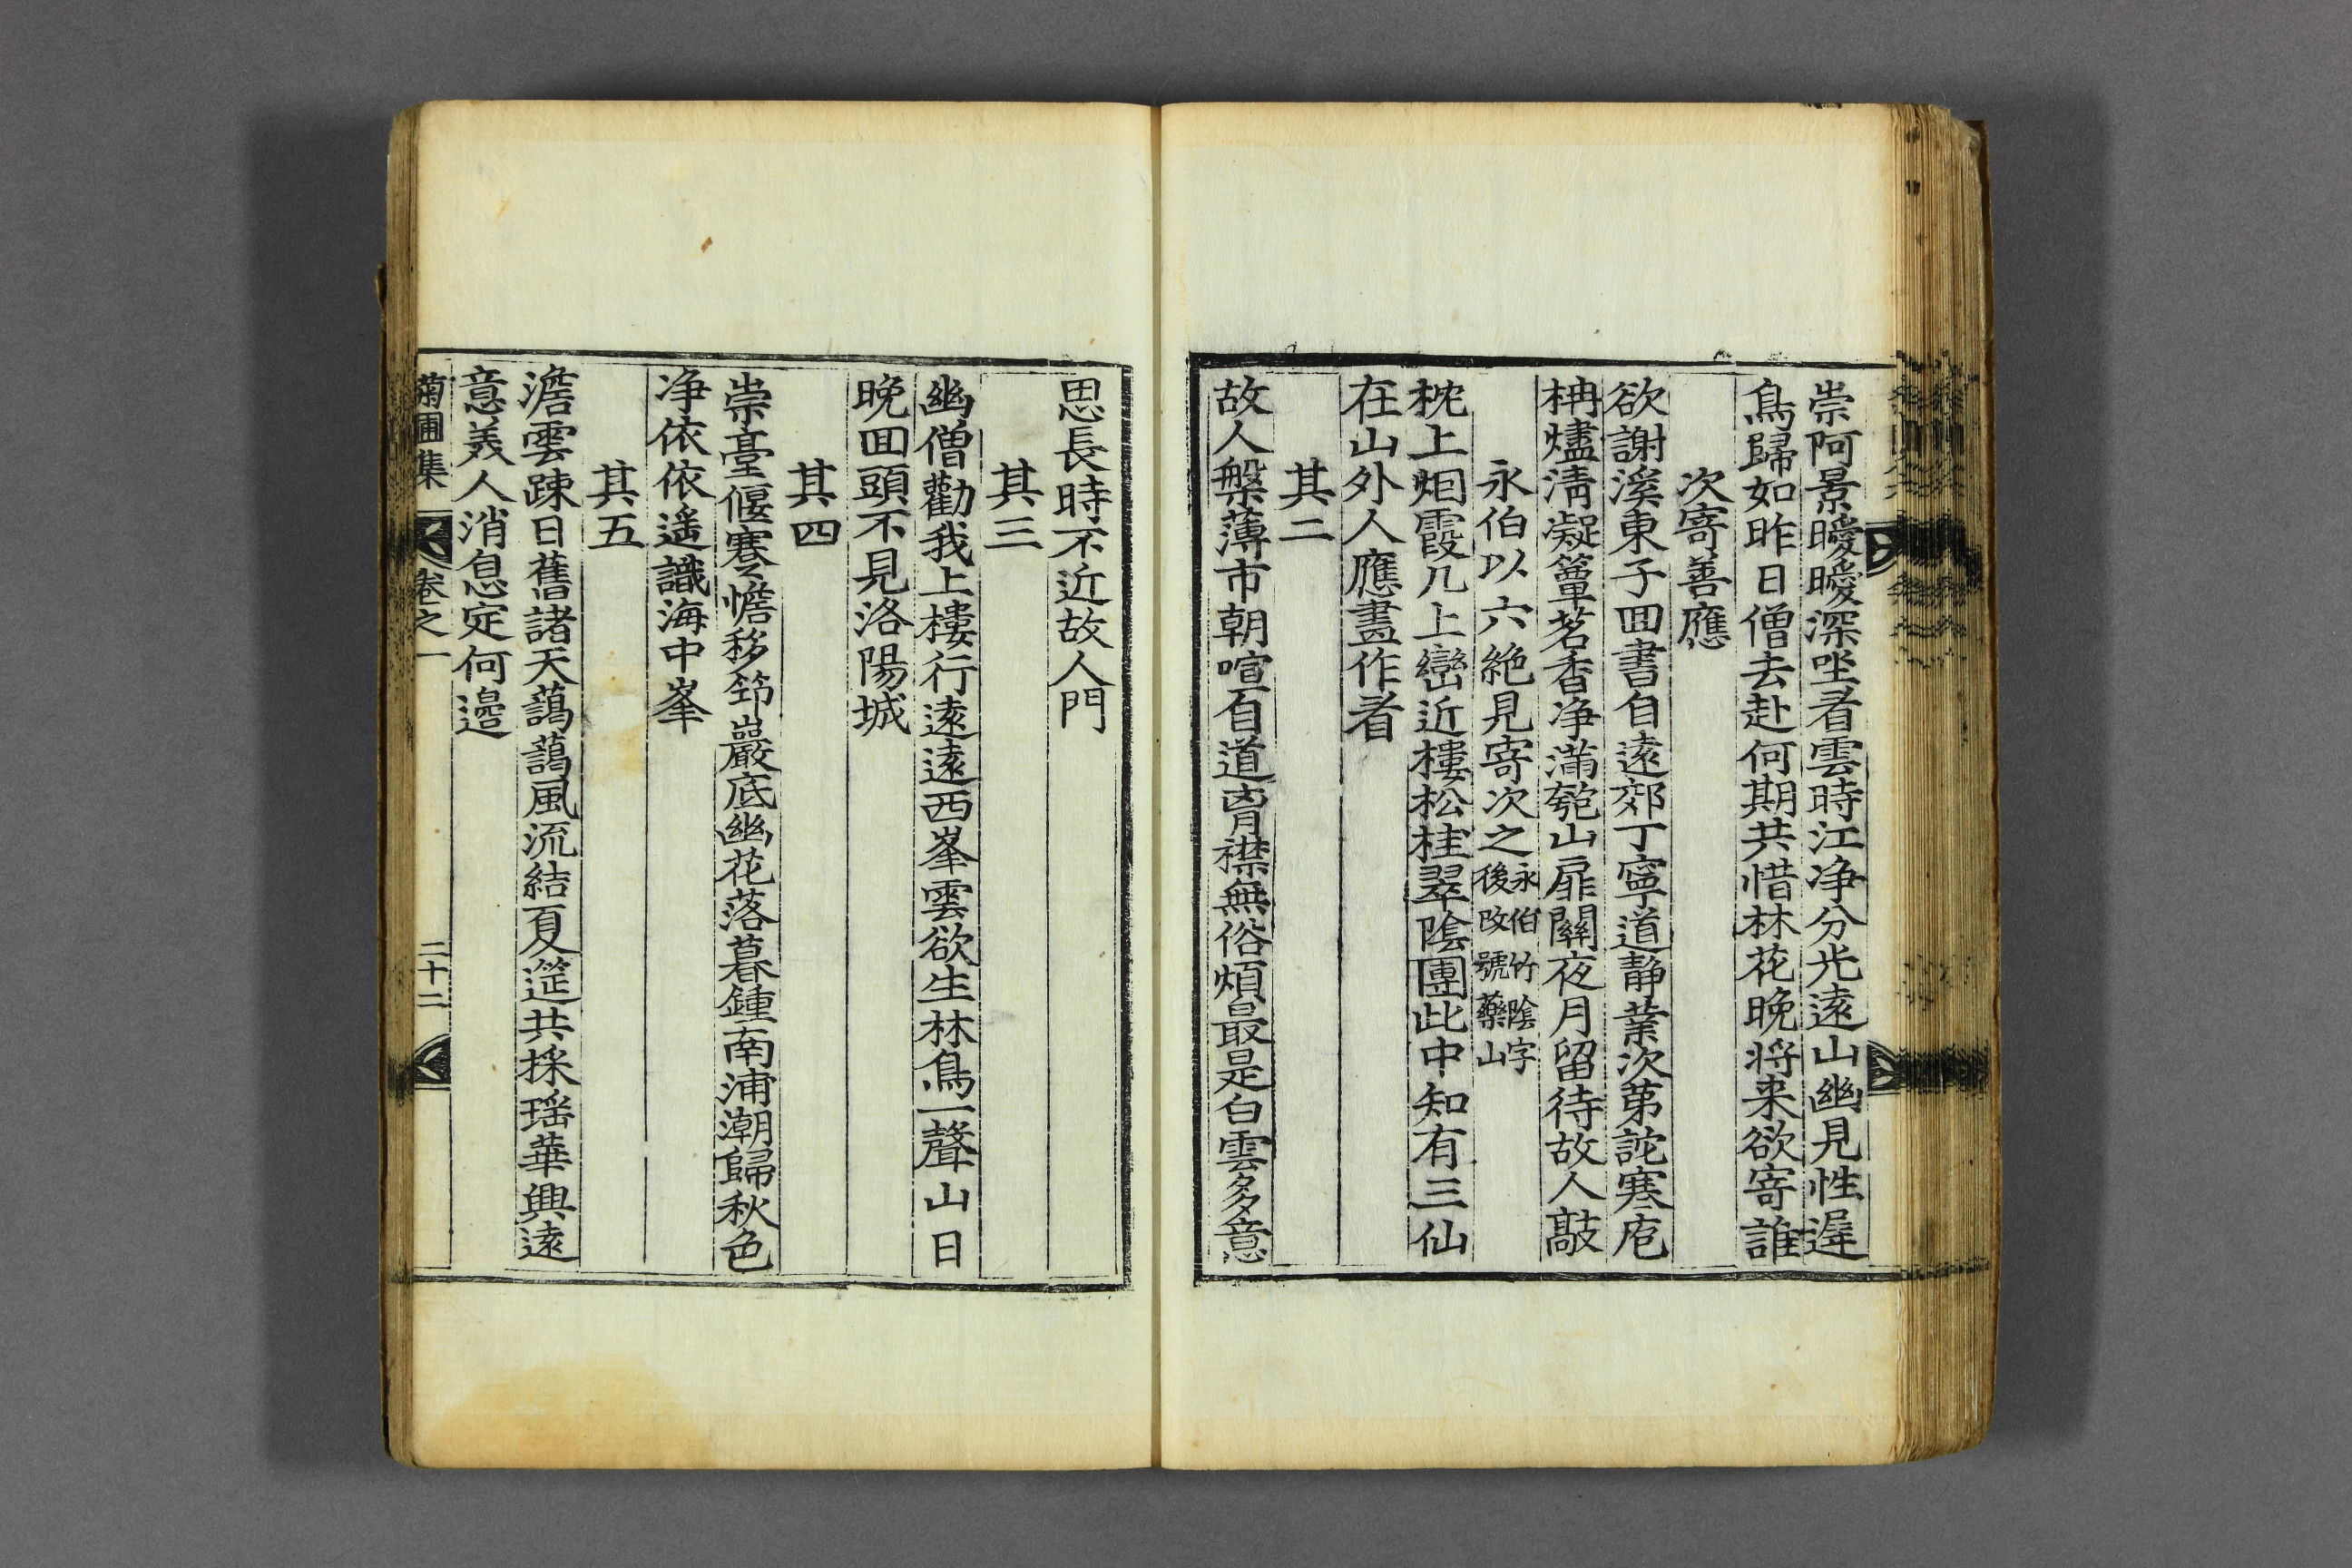 崇阿景曖曖深坐看雲時江净分光遠山幽見性遲
鳥歸如昨日僧去赴何期共惜林花晚將来欲寄誰
次寄善應
欲謝溪東子回書自遠郊丁寧道静業次第詫寒庖
柟爐淸凝簟茗香净滿匏山扉關夜月留待故人敲
永伯以六絶見寄次之永伯竹陰字後改號藥山
枕上烟霞几上巒近樓松桂翠陰團此中知有三仙
在山外人應畫作看
其二
故人槃薄市朝喧自道胷襟無俗煩最是白雲多多意
思長時不近故人門
其三
幽僧勸我上樓行遠遠西峯雲欲生林鳥一聲山日
晚回頭不見洛陽城
其四
崇臺偃蹇憺移筇巖底幽花落暮鍾南浦潮歸秋色
净依依遥識海中峯
其五
澹雲踈日舊諸天藹藹風流結夏筵共採瑶華興遠
意美人消息定何邉
菊圃集 卷之一 二十二